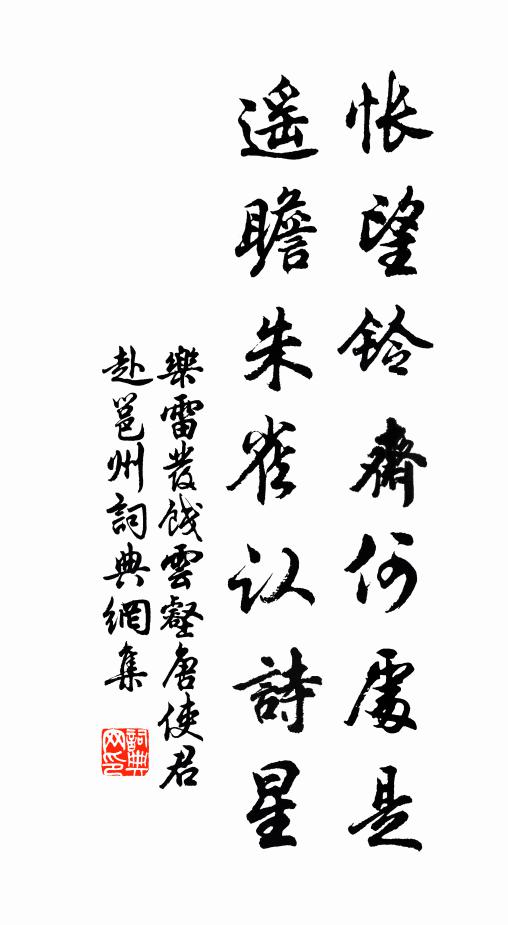 悵望鈴齋何處是
遥瞻朱雀认詩星
樂雷發餞雲壑唐使君
赴邕州詞典網集
詞典网印